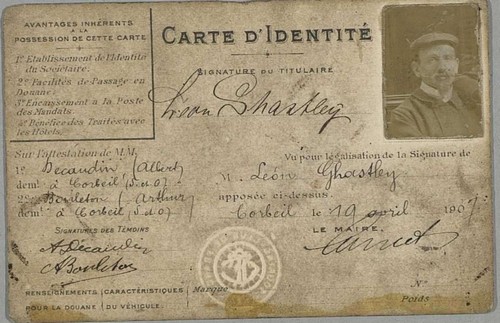 AVANTAGES INHÉRENTS
A LA
POSSESSION DE CETTE CARTE
1º Etablissement de l'Identité
du Sociétaire.
2º Facilités de Passage en
Douane.
3º Encaissement a la Poste
des Mandats.
4º Bénéfice des Traités avec
les Hôtels.
CARTE D'IDENTITÉ
SIGNATURE DU TITULAIRE
Léon Ghastley
Sur l'attestation de M.M.
1º Decaudin (Albert)
demt à Corbeil, S. & O.
2º Bouleton (Arthur)
demt à Corbeil, S. & O.
SIGNATURES DES TÉMOINS
A Decaudin
A Bouleton
Vu pour légalisation de la Signature de
M. Léon Ghastley
apposée ci-dessus.
Corbeil le 19 avril 1907
LE MAIRE.
RENSEIGNEMENTS CARACTÉRISTIQUES
POUR LA DOUANE DU VÉHICULE.
Marque
Nº
Poids